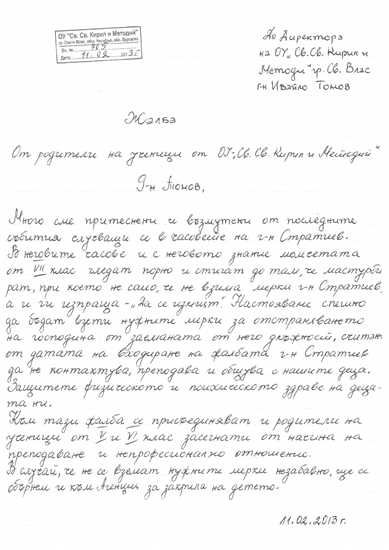 ОУ "Св. Св. Кирил и Методий"
Вх. № 765
Дата 11.02. 2013 г.
До Директора
на ОУ „Св.Св. Кирил и
Методи" гр. Св. Влас
г-н Ивайло Томов
Жалба
От родители на ученици от ОУ-„Св. Св. Кирил и Методий"
Г-н Томов,
Много сме притеснени и възмутени от последните
събития случващи се в часовете на г-н Стратиев.
В неговите часове и с неговото знание момчетата
от VII клас гледат порно и стигат до там, че мастурби
рат, при което не само, че не взима мерки г-н Стратиев,
а и ги изпраща - „Да се изпразнят". Настояваме спешно
да бъдат взети нужните мерки за отстраняването
на господина от заеманата от него длъжност, считан
от датата на входиране на жалбата г-н Стратиев
да не контактува, преподава и общува с нашите деца.
Защитете физическото и психическото здраве на деца-
та ни.
Към тази жалба се присъединяват и родители на
ученици от V и VI клас засегнати от начина на
преподаване и непрофесионално отношение.
В случай, че не се вземат нужните мерки незабавно, ще се
обърнем и към Агенция за закрила на детето.
11.02.2013 г.